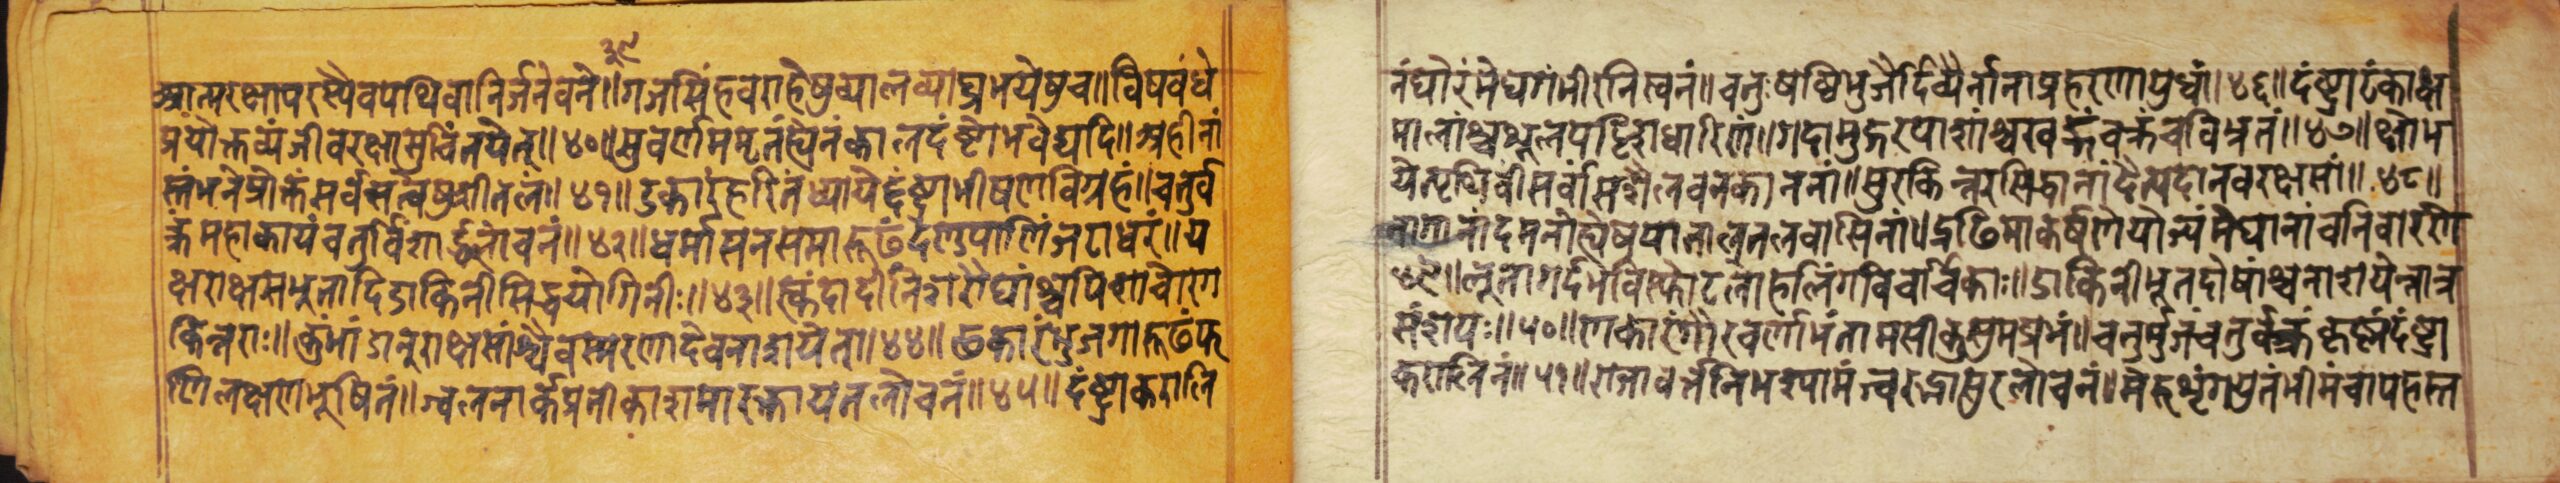 ३९
आत्मरक्षापरस्यैवपथिवानिर्जनेवने॥गजसिंहवराहेषुव्यालव्याघ्रभयेषुच॥विषबंधे
प्रयोक्तव्यंजीवरक्षासुचिंतयेत्॥४०॥सुवर्णममृतंह्येनंकालदंष्टोभवेद्यदि॥अहीनां
स्तंभनेप्रोक्तंसर्वसत्वेषुशीतलं॥४१॥डकारंहरितंध्यायेद्दंष्ट्राभीषणविग्रहं॥चतुर्व
क्त्रंमहाकायंचतुर्विंशार्द्धलोचनं॥४२॥धर्मासनसमारूढंदंडपाणिंजटाधरं॥य
क्षराक्षसभूतादिडाकिनीसिद्धयोगिनीः॥४३॥स्कंदादीनिशरोघांश्चपिशाचोरग
किन्नराः॥कुंभांडानुराक्षसांश्चैवस्मरणादेवनाशयेत्॥४४॥ढकारंभुजगारूढंफ
णिलक्षणभूषितं॥ज्वलनार्कप्रतीकाशमारक्तायतलोचनं॥४५॥दंष्ट्राकरालि
नंघोरंमेघगंभीरनिस्वनं॥चतुःषष्ठिभुजैर्दिव्यैर्नानाप्रहरणायुधां॥४६॥दंष्ट्राटंकाक्ष
मालांश्चशूलपट्टिशधारिणं॥गदामुद्गरपाशांश्चखड्गंवक्त्रंचविभ्रतं॥४७॥क्षोभ
येत्पृथिवींसर्वांसशैलवनकाननां॥सुरकिन्नरसिद्धानांदैत्यदानवरक्षसां॥४८॥
नागानांदमनोह्येषपातालतलवासिनां॥द्रढिमाकर्षणेयोज्यंमेघानांचनिवारणे
४९॥लूतागर्दभविस्फोटलोहलिंगविचर्चिकाः॥डाकिनीभूतदोषांश्चनाशयेन्नात्र
संशयः॥५०॥णकारंगौरवर्णाभंतामसीकुसुमप्रभं॥चतुर्भुजंचतुर्वक्त्रंकृष्णंदंष्ट्रा
करालिनं॥५१॥राजावर्तनिभश्यामंज्वरद्भासुरलोचनं॥मेरुशृंगयुतंभीमंचापहस्त